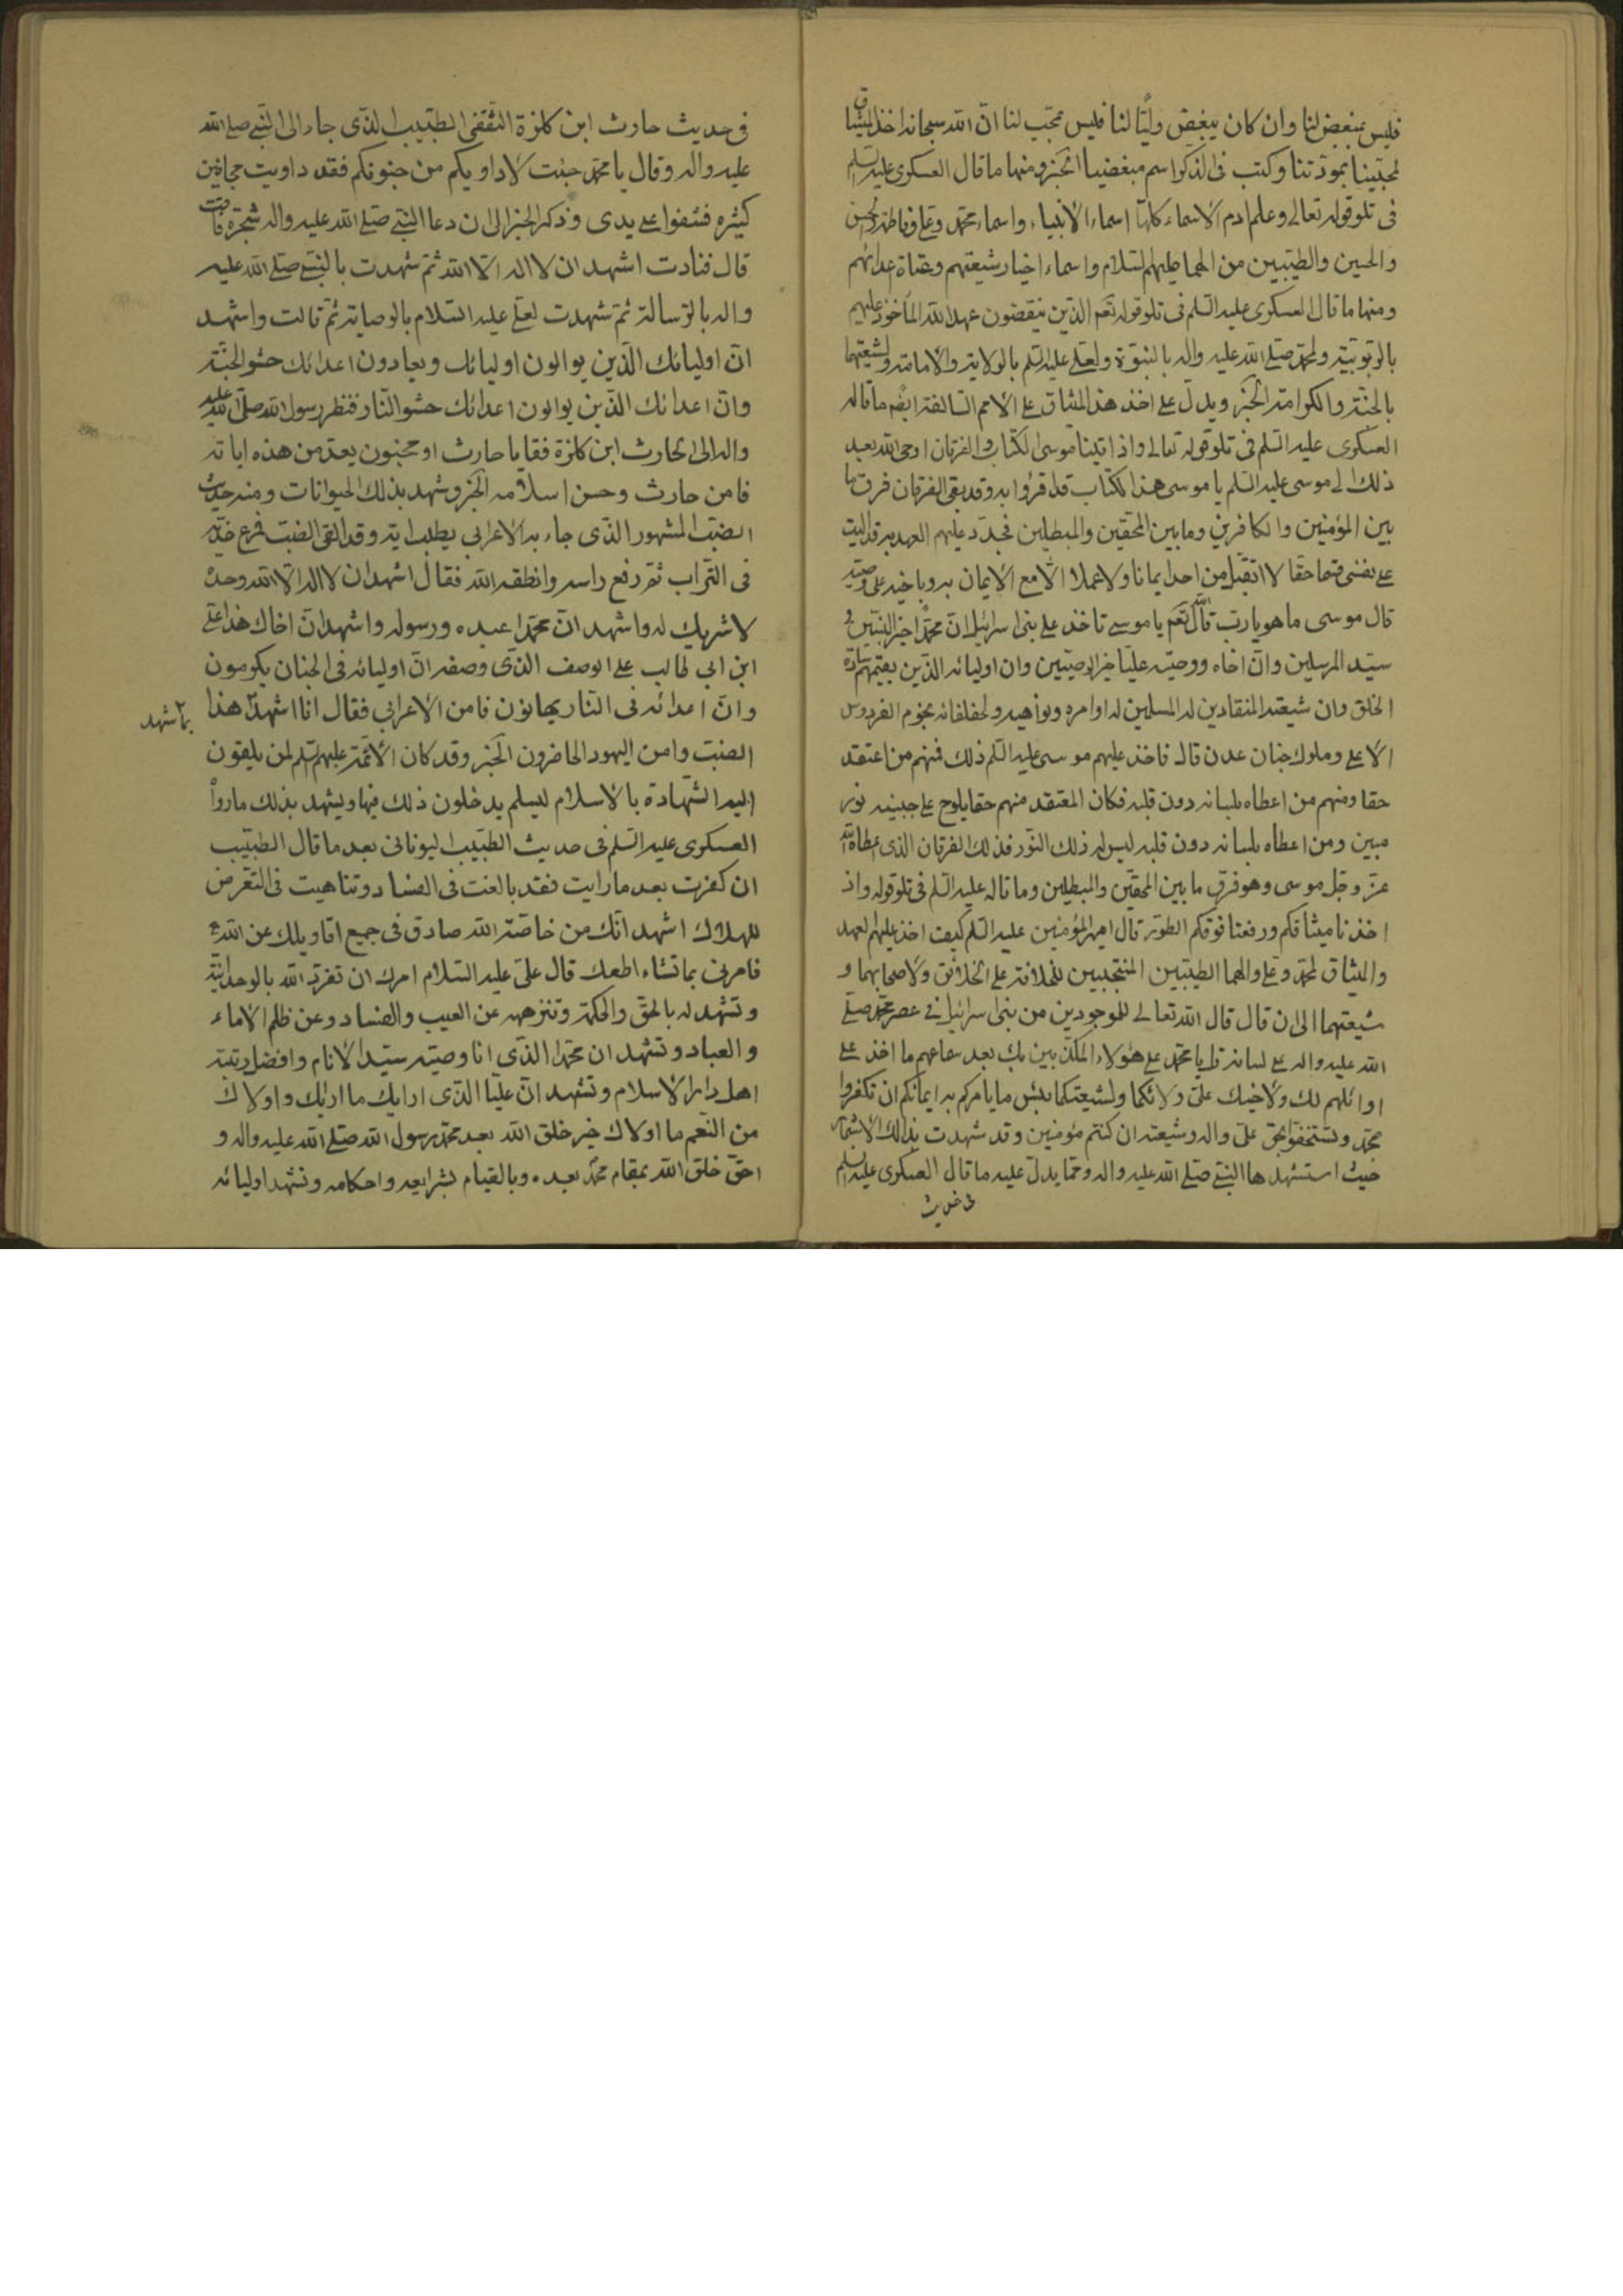 فليس بمبغض لنا وان كان يبغض وليّا لنا فليس بمحبّ لنا انّ الله سبحانه اخذ الميثاق
لمحبّينا بمودّتنا وكتب فى الذكر اسم مبغضينا الخبر ومنها ما قال العسكرى عليه السلم
فى تلو قوله تعالى وعلم ادم الاسماء كلها اسماء الانبياء واسماء محمّد وعلى وفاطمة والحسن
والحسين والطيّبين من الهما عليهم السلام واسماء اخيار شيعتهم وعتاة اعدائهم
ومنها ما قال العسكرى عليه السلم فى تلو قوله تعم الذين ينقضون عهد الله المأخوذ عليهم
بالربوبيّة ولمحمّد صلى الله عليه واله بالنبوّة ولعلى عليه السلم بالولاية والامامة ولشيعتهما
بالجنّة والكرامة الخبر ويدلّ على اخذ هذا الميثاق على الامم السالفة ايضا ما قاله
العسكرى عليه السلم فى تلو قوله تعالى واذ اتينا موسى الكتاب والفرقان اوحى الله بعد
ذلك الى موسى عليه السلم يا موسى هذا الكتاب قد اقرّوا به وقد بقى الفرقان فرق ما
بين المؤمنين والكافرين وما بين المحقّين والمبطلين فجدّد عليهم العهد به قد اليت
على نفسى قسما حقا لا اتقبّل من احد ايمانا ولا عملا الّا مع الايمان به وباخيه على وصيّه
قال موسى ما هو يا رب قال الله تعم يا موسى تاخذ على بنى اسرائيل انّ محمّدا خير النبيّين و
سيّد المرسلين وانّ اخاه ووصيّه عليّا خير الوصيّين وان اوليائه الذين يقيمهم سادة
الخلق وان شيعته المنقادين له المسلمين له اوامره ونواهيه ولخلفائه نجوم الفردوس
الاعلى وملوك جنان عدن قال فاخذ عليهم موسى عليه السلم ذلك فمنهم من اعتقد
حقا ومنهم من اعطاه بلسانه دون قلبه فكان المعتقد منهم حقا يلوح على جبينه نور
مبين ومن اعطاه بلسانه دون قلبه ليس له ذلك النّور فذلك الفرقان الذى اعطاه الله
عزّ وجلّ موسى وهو فرق ما بين المحقّين والمبطلين وما قاله عليه السلم فى تلو قوله واذ
اخذنا ميثاقكم ورفعنا فوقكم الطور قال امير المؤمنين عليه السلم كيف اخذ عليهم العهد
والميثاق لمحمّد وعلى والهما الطيّبين المنتجبين للخلافة على الخلائق ولاصحابهما و
شيعتهما الى ان قال قال الله تعالى للموجودين من بنى اسرائيل فى عصر محمّد صلّى
الله عليه واله على لسانه قل يا محمّد على هؤلاء المكذّبين بك بعد سماعهم ما اخذ على
اوائلهم لك ولاخيك علىّ ولالكما ولشيعتكما بئس ما يامركم به ايمانكم ان تكفروا
بمحمّد وتستخفّوا بحق علىّ واله وشيعته ان كنتم مؤمنين وقد شهدت بذلك الاشجار
حيث استشهدها النبىّ صلى الله عليه واله وممّا يدلّ عليه ما قال العسكرى عليه السلم
فى حديث
فى حديث حارث ابن كلزة الثقفى الطبيب الذى جاء الى النبىّ صلى الله
عليه واله وقال يا محمّد جئت لاداويكم من جنونكم فقد داويت مجانين
كثيره فشفوا على يدى وذكر الخبر الى ان دعا النبىّ صلى الله عليه واله شجرة فاتت
قال فنادت اشهد ان لا اله الّا الله ثمّ شهدت بالنبىّ صلى الله عليه
واله بالرّسالة ثمّ شهدت لعلىّ عليه السلام بالوصاية ثمّ قالت واشهد
انّ اوليائك الّذين يوالون اوليائك ويعادون اعدائك حشو الجنّة
وانّ اعدائك الذين يوالون اعدائك حشو النّار فنظر رسول الله صلى الله عليه
واله الى الحارث ابن كلزة فقا يا حارث او مجنون يعدّ من هذه اياته
فامن حارث وحسن اسلامه الخبر وشهد بذلك الحيوانات ومنه حديث
الضبّ المشهور الذى جاء به الاعرابى يطلب اية وقد القى الضبّ فمرّغ خدّيه
فى التّراب ثم رفع راسه وانطقه الله فقال اشهد ان لا اله الّا الله وحده
لا شريك له واشهد انّ محمّدا عبده ورسوله واشهد انّ اخاك هذا علىّ
ابن ابى طالب على الوصف الذى وصفه انّ اوليائه فى الجنان يكرمون
وانّ اعدائه فى النار يهانون فامن الاعرابى فقال انا اشهد هذا
بما شهد
الضبّ وامن اليهود الحاضرون الخبر وقد كان الائمّة عليهم السلم لمن يلقون
اليه الشهادة بالاسلام ليسلم يدخلون ذلك فيها ويشهد بذلك ما رواه
العسكرى عليه السلم فى حديث الطبيب اليونانى بعد ما قال الطبيب
ان كفرت بعد ما رايت فقد بالغت فى الفساد وتناهيت فى التعرض
للهلاك اشهد انّك من خاصّة الله صادق فى جميع اقاويلك عن الله
فامرنى بما تشاء اطعك قال علىّ عليه السلام امرك ان تفرّد الله بالوحدانيّة
وتشهد له بالحقّ والحكمة وتنزهه عن العيب والفساد وعن ظلم الاماء
والعباد وتشهد ان محمّدا الذى انا وصيّه سيّد الانام وافضل رتبة
اهل دار الاسلام وتشهد انّ عليّا الّذى ارايك ما اريك واولاك
من النّعم ما اولاك خير خلق الله بعد محمّد رسول الله صلى الله عليه واله و
احقّ خلق الله بمقام محمّد بعده وبالقيام بشرايعه واحكامه وتشهد اوليائه